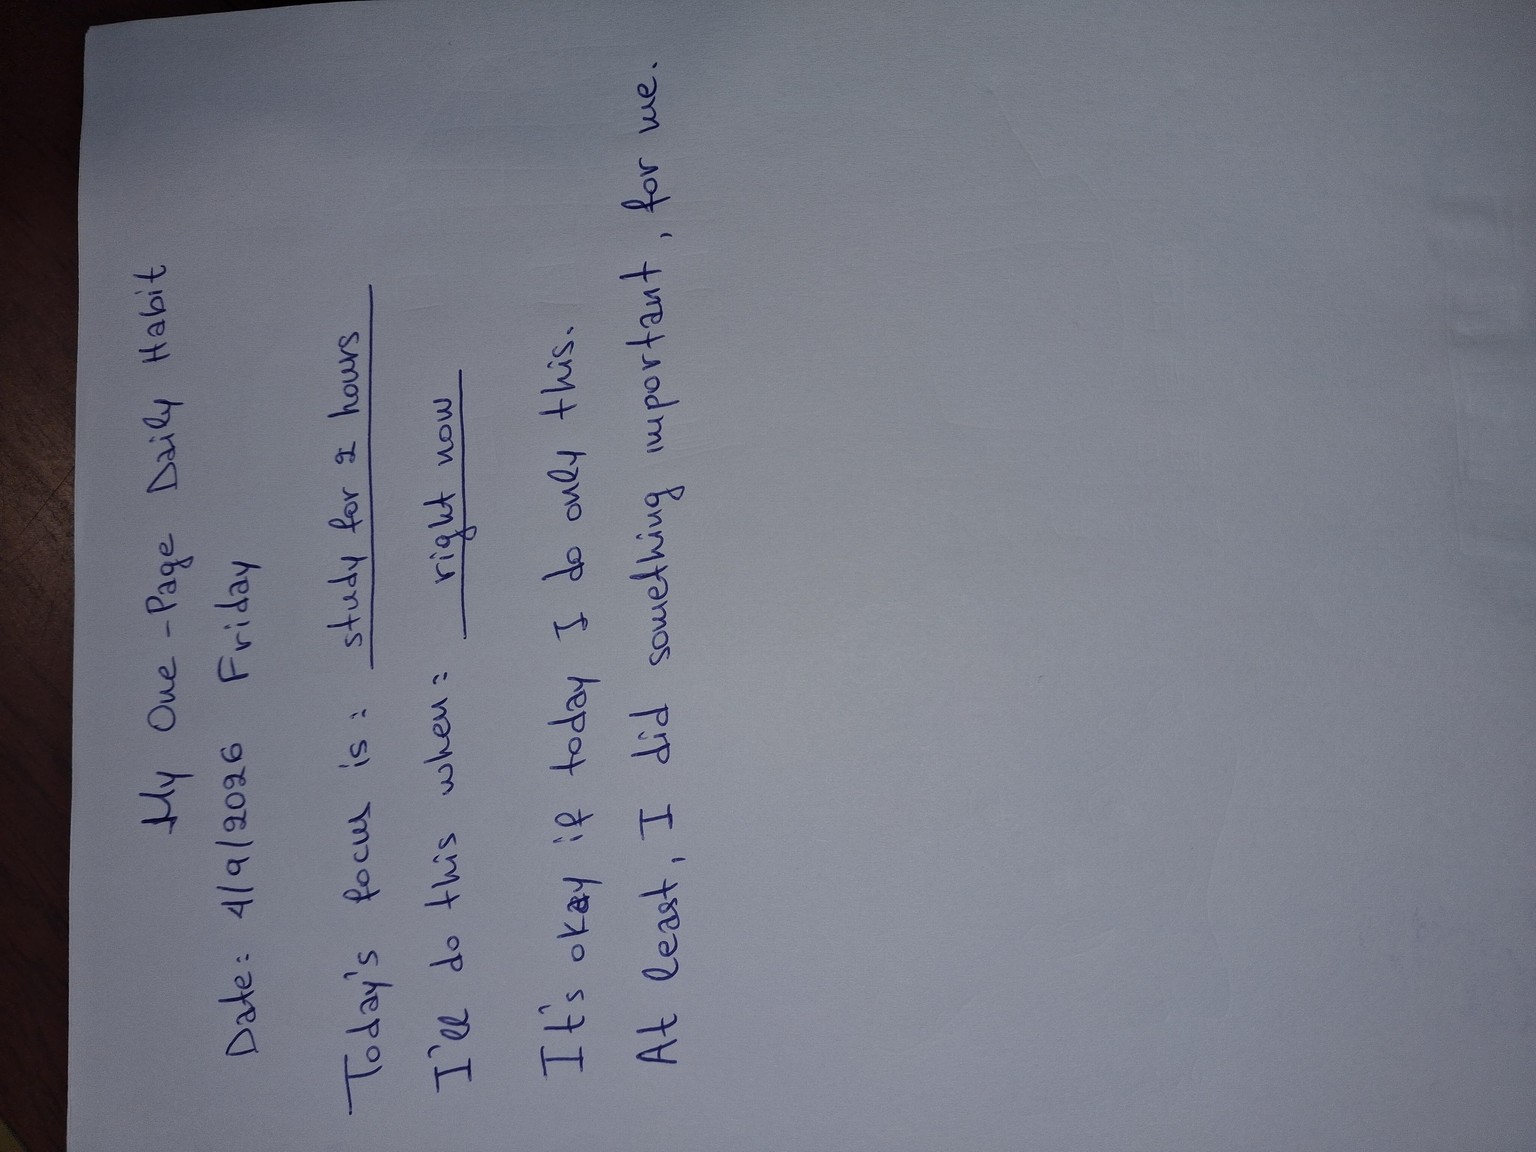 My One-Page Daily Habit
Date: 4/9/2026 Friday
Today's focus is: study for 2 hours
I'll do this when: right now
It's okay if today I do only this.
At least, I did something important, for me.